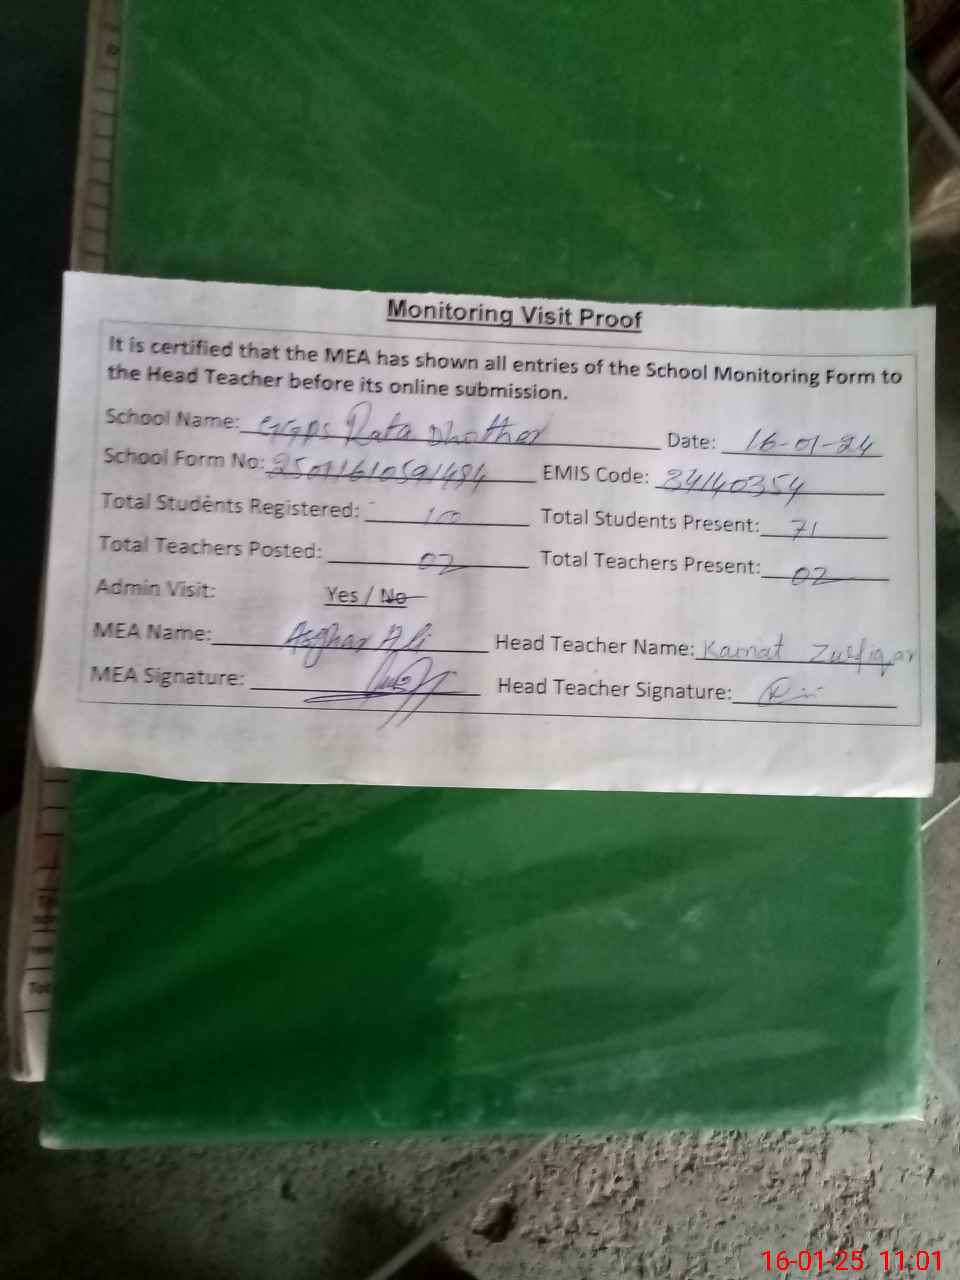 Monitoring Visit Proof
It is certified that the MEA has shown all entries of the School Monitoring Form to
the Head Teacher before its online submission.
School Name: GGPS Rata Dhother Date: 16-01-24
School Form No: 25011610591484 EMIS Code: 34140354
Total Students Registered: 100 Total Students Present: 71
Total Teachers Posted: 02 Total Teachers Present: 02
Admin Visit: Yes / No
MEA Name: Asghar Ali Head Teacher Name: Kainat Zulfiqar
MEA Signature: Head Teacher Signature:
16-01-25 11:01